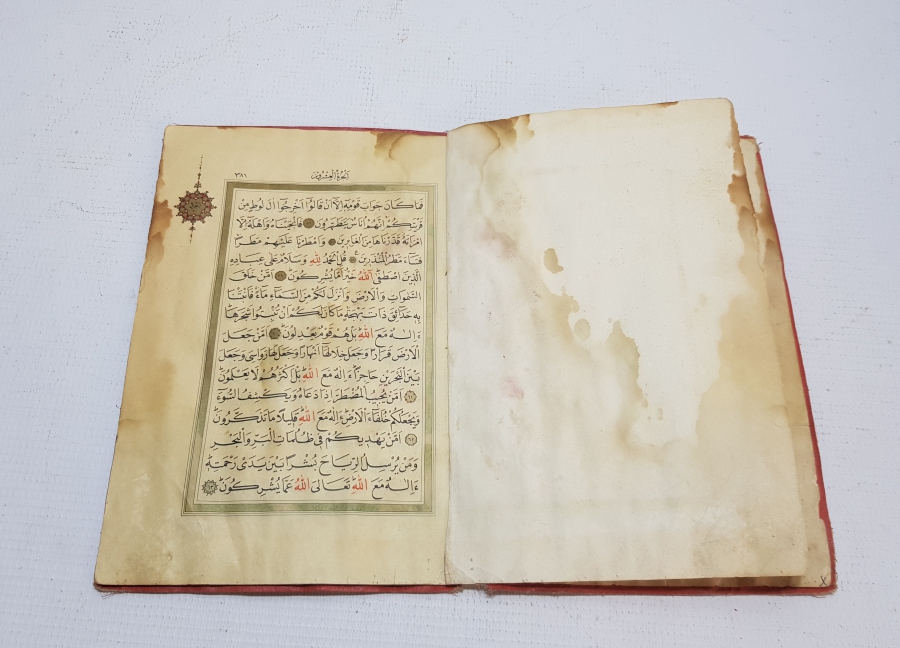 الجزء العشرون ٣٨١
فَمَا كَانَ جَوَابَ قَوْمِهِ اِلَّا اَنْ قَالُوا اَخْرِجُوا اٰلَ لُوطٍ مِنْ
قَرْيَتِكُمْ اِنَّهُمْ اُنَاسٌ يَتَطَهَّرُونَ فَاَنْجَيْنَاهُ وَاَهْلَهُ اِلَّا
امْرَاَتَهُ قَدَّرْنَاهَا مِنَ الْغَابِرِينَ وَاَمْطَرْنَا عَلَيْهِمْ مَطَرًا
فَسَاءَ مَطَرُ الْمُنْذَرِينَ قُلِ الْحَمْدُ لِلّٰهِ وَسَلَامٌ عَلٰى عِبَادِهِ
الَّذِينَ اصْطَفٰى آللّٰهُ خَيْرٌ اَمَّا يُشْرِكُونَ اَمَّنْ خَلَقَ
السَّمٰوَاتِ وَالْاَرْضَ وَاَنْزَلَ لَكُمْ مِنَ السَّمَاءِ مَاءً فَاَنْبَتْنَا
بِهِ حَدَائِقَ ذَاتَ بَهْجَةٍ مَا كَانَ لَكُمْ اَنْ تُنْبِتُوا شَجَرَهَا
ءَاِلٰهٌ مَعَ اللّٰهِ بَلْ هُمْ قَوْمٌ يَعْدِلُونَ اَمَّنْ جَعَلَ
الْاَرْضَ قَرَارًا وَجَعَلَ خِلَالَهَا اَنْهَارًا وَجَعَلَ لَهَا رَوَاسِيَ وَجَعَلَ
بَيْنَ الْبَحْرَيْنِ حَاجِزًا ءَاِلٰهٌ مَعَ اللّٰهِ بَلْ اَكْثَرُهُمْ لَا يَعْلَمُونَ
اَمَّنْ يُجِيبُ الْمُضْطَرَّ اِذَا دَعَاهُ وَيَكْشِفُ السُّوءَ
وَيَجْعَلُكُمْ خُلَفَاءَ الْاَرْضِ ءَاِلٰهٌ مَعَ اللّٰهِ قَلِيلًا مَا تَذَكَّرُونَ
اَمَّنْ يَهْدِيكُمْ فِي ظُلُمَاتِ الْبَرِّ وَالْبَحْرِ
وَمَنْ يُرْسِلُ الرِّيَاحَ بُشْرًا بَيْنَ يَدَيْ رَحْمَتِهِ
ءَاِلٰهٌ مَعَ اللّٰهِ تَعَالَى اللّٰهُ عَمَّا يُشْرِكُونَ